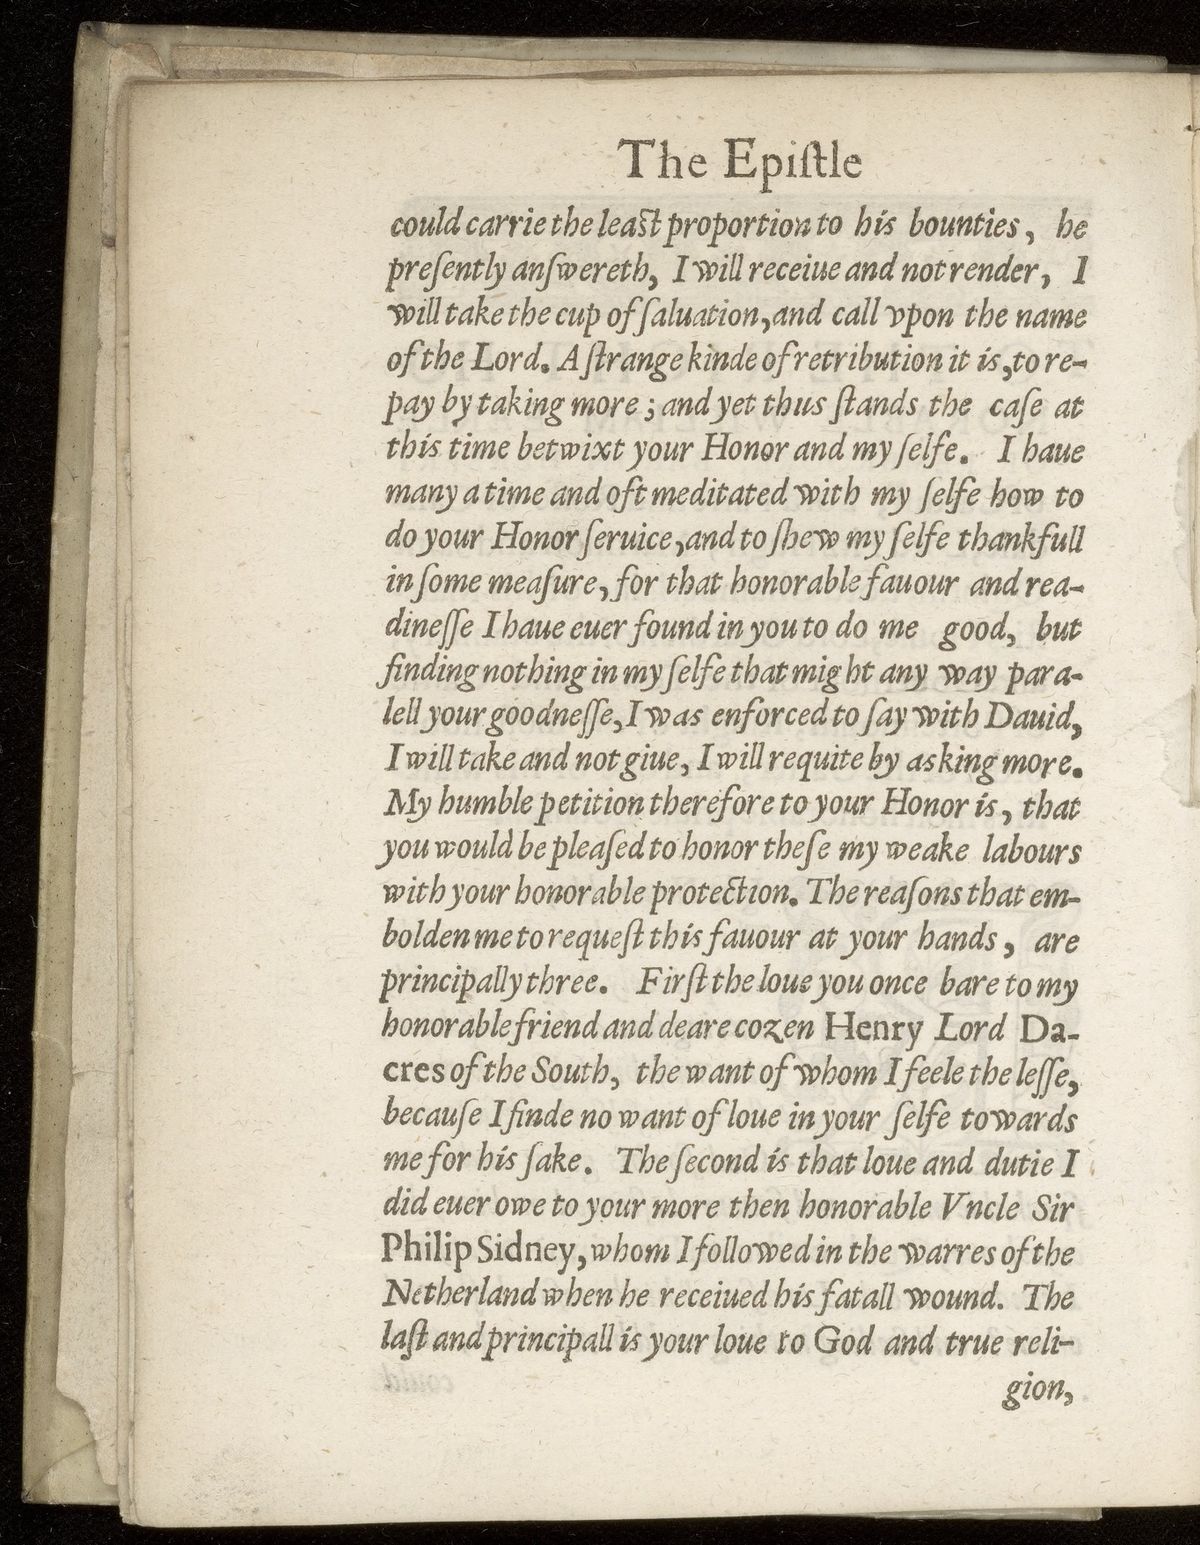 The Epiſtle
could carrie the leaſt proportion to his bounties, he
preſently anſwereth, I will receiue and not render, I
will take the cup of ſaluation, and call vpon the name
of the Lord. A ſtrange kinde of retribution it is, to re-
pay by taking more; and yet thus ſtands the caſe at
this time betwixt your Honor and my ſelfe. I haue
many a time and oft meditated with my ſelfe how to
do your Honor ſeruice, and to ſhew my ſelfe thankfull
in ſome meaſure, for that honorable fauour and rea-
dineſſe I haue euer found in you to do me good, but
finding nothing in my ſelfe that might any way para-
lell your goodneſſe, I was enforced to ſay with Dauid,
I will take and not giue, I will requite by asking more.
My humble petition therefore to your Honor is, that
you would be pleaſed to honor theſe my weake labours
with your honorable protection. The reaſons that em-
bolden me to requeſt this fauour at your hands, are
principally three. Firſt the loue you once bare to my
honorable friend and deare cozen Henry Lord Da-
cres of the South, the want of whom I feele the leſſe,
becauſe I finde no want of loue in your ſelfe towards
me for his ſake. The ſecond is that loue and dutie I
did euer owe to your more then honorable Vncle Sir
Philip Sidney, whom I followed in the warres of the
Netherland when he receiued his fatall wound. The
laſt and principall is your loue to God and true reli-
gion,